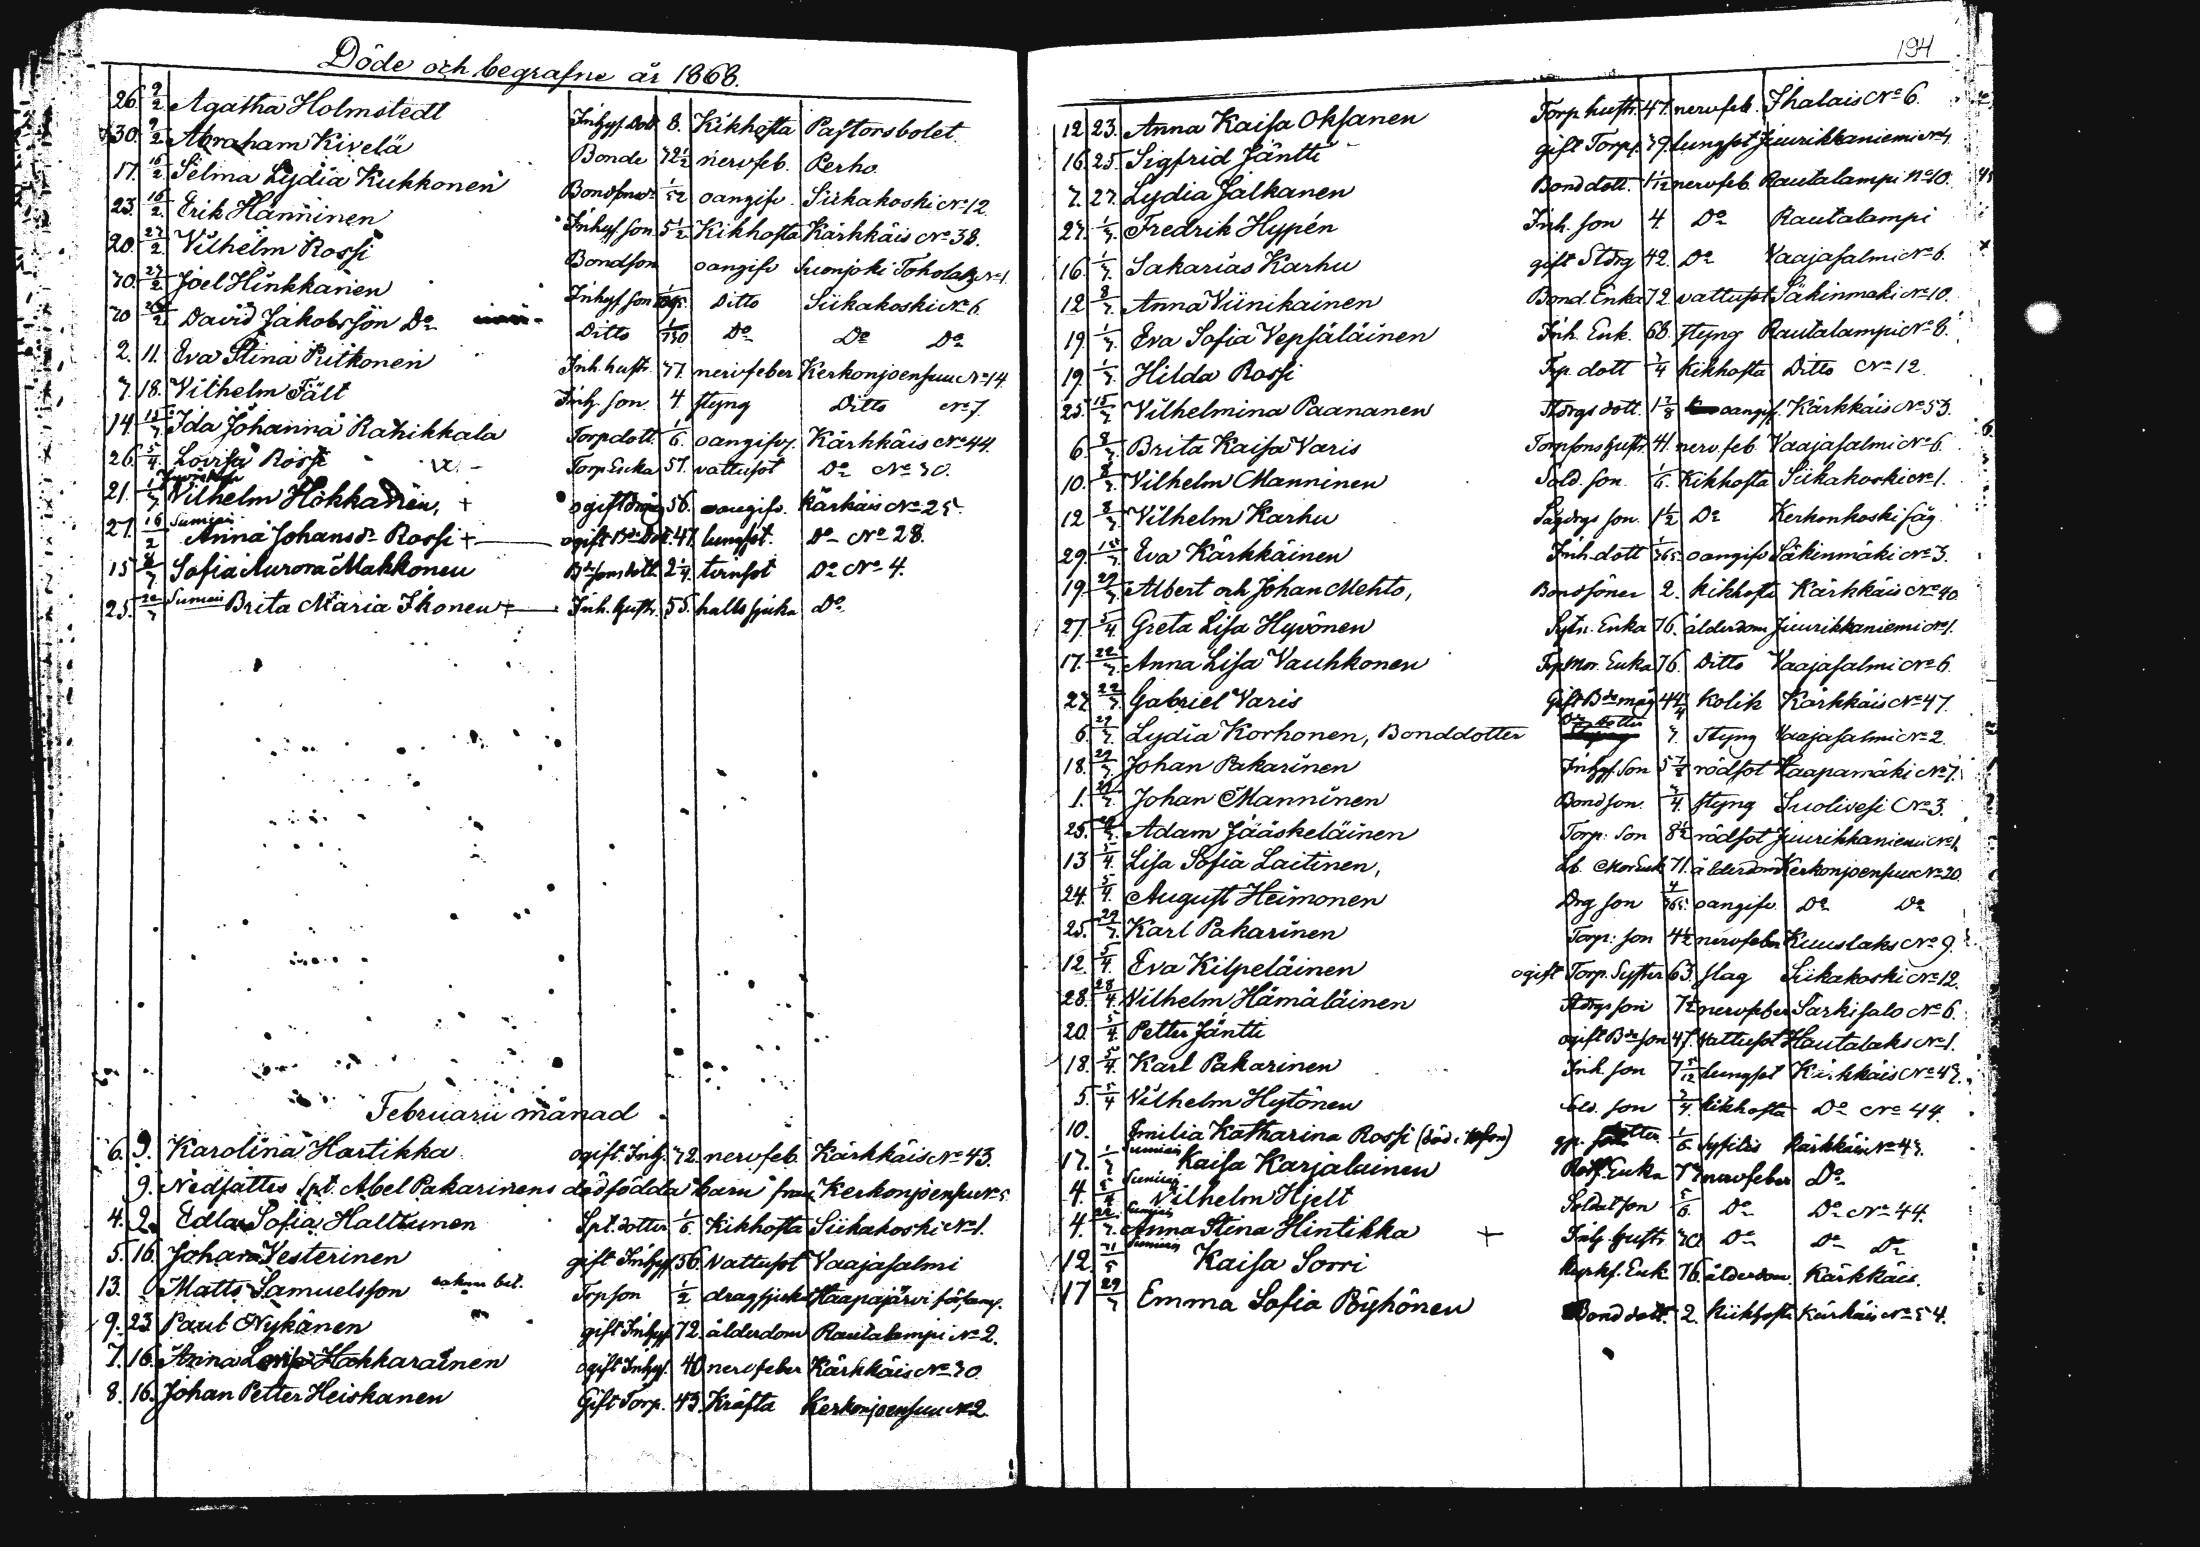 Döde och begrafne år 1868.
26. 9/2 Agatha Holmstedt Inhys Dott 8. Kikhosta Pastorsbolet.
30. 9/2 Abraham Kivelä Bonde 72 1/2 nervfeb. Perho
17. 16/2 Selma Lydia Kukkonen 1/52 oangifv. Siikakoski No 12.
23. 16/2 Erik Hänninen Inhys son 5 1/2 Kikhosta Kärkkäis No 38.
20. 27/2 Vilhelm Rossi Bondson oangifv Suonjoki No 1.
30. 27/2 Joel Hinkkanen Inhys son Ditto Siikakoski No 6.
30 David Jakobsson Do Ditto Do Do Do
2. 11. Eva Stina Putkonen Inh. hustr. 77. nervfeber Kerkonjoensuu No 14
7. 18. Vilhelm Fält Inh. son 4. styng Ditto No 7
14. 15/3 Ida Johanna Rahikkala Torp dott. 1/6. oangifv. Kärkkäis No 44.
26. 5/4 Lovisa Rossi Torp Enka 57. vattusot Do No 30.
21. 1/3 Vilhelm Hokkanen, + ogift dräng 56. oangifv. Kärkäis No 25.
27. 16/2 Sumiais Anna Johansdr Rossi + ogift 47. lungsot. Do No 28.
15 Sofia Aurora Makkonen 2 1/4. tvinsot Do No 4.
25. 22/3 Sumiais Brita Maria Ikonen + Inh. hustr. 55. hallssjuka Do
Februarii månad
6. 9. Karolina Hartikka ogift Inh. 72. nervfeb. Kärkkäis No 43.
9. Nedsattes Spt. Abel Pakarinens dödfödda barn från Kerkonjoensuu No 5
4. 2. Edla Sofia Halttunen Spt. dotter 1/6. Kikhosta Siikakoski No 1.
5. 16. Johan Vesterinen gift Inhys 56. Vattusot Vaajasalmi
13. Matts Samuelsson Torpson 1/2 dragsjuka Haapajärvi församl.
9. 23. Paul Nykänen gift Inhys 72. ålderdom Rautalampi No 2.
7. 16. Anna Lovisa Hakkarainen ogift Inhys. 40. nervfeber Kärkkäis No 30
8. 16. Johan Petter Heiskanen Gift Torp. 43. Kräfta Kerkonjoensuu No 2
194
12 23. Anna Kaisa Oksanen Torp hustr. 47. nervfeb. Ihalais No 6.
16. 25. Sigfrid Jäntti gift Torp. 39. lungsot Juurikkaniemi No 4.
7. 27. Lydia Jalkanen Bond dott. 1 1/12 nervfeb. Rautalampi No 10.
27. 1/3. Fredrik Hypén Inh. son 4. Do Rautalampi
16. 1/3. Sakarias Karhu gift Stdrg 42. Do Vaajasalmi No 6.
12 8/3. Anna Viinikainen Bond. Enka 72. vattusot Säkinmäki No 10.
19. 1/3. Eva Sofia Vepsäläinen Inh. Enk. 68. styng Rautalampi No 8.
19. 1/3. Hilda Rossi Trp. dott 3/4 Kikhosta Ditto No 12
25. 15/3 Vilhelmina Paananen Stdrgs dott. 1 7/8 oangif. Kärkkäis No 53.
6. 8/3. Brita Kaisa Varis Torpsons hustr. 41. nerv. feb. Vaajasalmi No 6.
10. 8/3. Vilhelm Manninen Sold. son. 1/6. Kikhosta Siikakoski No 1.
12 8/3. Vilhelm Karhu Sågdrgs son. 1 1/2 Do Kerkonkoski såg.
29. 15/3. Eva Kärkkäinen Inh. dott 1/365 oangifv Säkinmäki No 3.
19. 29/3. Albert och Johan Mehto, Bondsöner 2. kikhosta Kärkkäis No 40.
27. 5/4. Greta Lisa Hyvönen Enka 76. ålderdom Juurikkaniemi No 1.
17. 22/3. Anna Lisa Vauhkonen Trp Mor. Enka 76. Ditto Vaajasalmi No 6.
27 22/3. Gabriel Varis Gift Bde måg 44 1/4 Kolik Kärkkäis No 47.
6. 29/3. Lydia Korhonen, Bonddotter 3. Styng Vaajasalmi No 2.
18. 29/3. Johan Pakarinen Inhys. Son 5 7/8 rödsot Haapamäki No 7.
1. 29/3. Johan Manninen Bondson. 3/4. styng Suolivesi No 3.
25. 29/3. Adam Jääskeläinen Torp. Son 8 1/2 rödsot Juurikkaniemi No 1.
13 5/4. Lisa Sofia Laitinen, 71. ålderdom Kerkonjoensuu No 20
24. 5/4. August Heimonen Drg son 4/365. oangifv. Do Do
25. 29/3. Karl Pakarinen Torp. son 4 1/2 nervfeber Kuuslaks No 9.
12. 5/4. Eva Kilpeläinen ogift Torp. Syster 63. slag Siikakoski No 12.
28. 28/4. Vilhelm Hämäläinen Stdrgs son 7 1/2 nervfeber Särkisalo No 6.
20. 5/4. Petter Jäntti ogift Bde son 47. Vattusot Hautalaks No 1.
18. 5/4. Karl Pakarinen Inh. son 7 5/12 lungsot Kärkkäis No 43.
5. 5/4 Vilhelm Hytönen son 3/4. kikhosta Do No 44.
10. Emilia Katharina Rossi dotter 1/6 Syfilis Kärkkäis No 43.
17. 1/3 Sumiais Kaisa Karjalainen Enka 73 nervfeber Do
4. 5/4 Sumiais Vilhelm Hjelt Soldat son 5/6 Do Do No 44.
4. 22/3. Sumiais Anna Stina Hintikka + Inhys. hustr 30 Do Do Do
12 31/5 Sumiais Kaisa Sorri Enk. 76. ålderdom Kärkkäis.
17 29/3 Emma Sofia Pöyhönen Bond dott. 2. Kikhosta Kärkäis No 54.